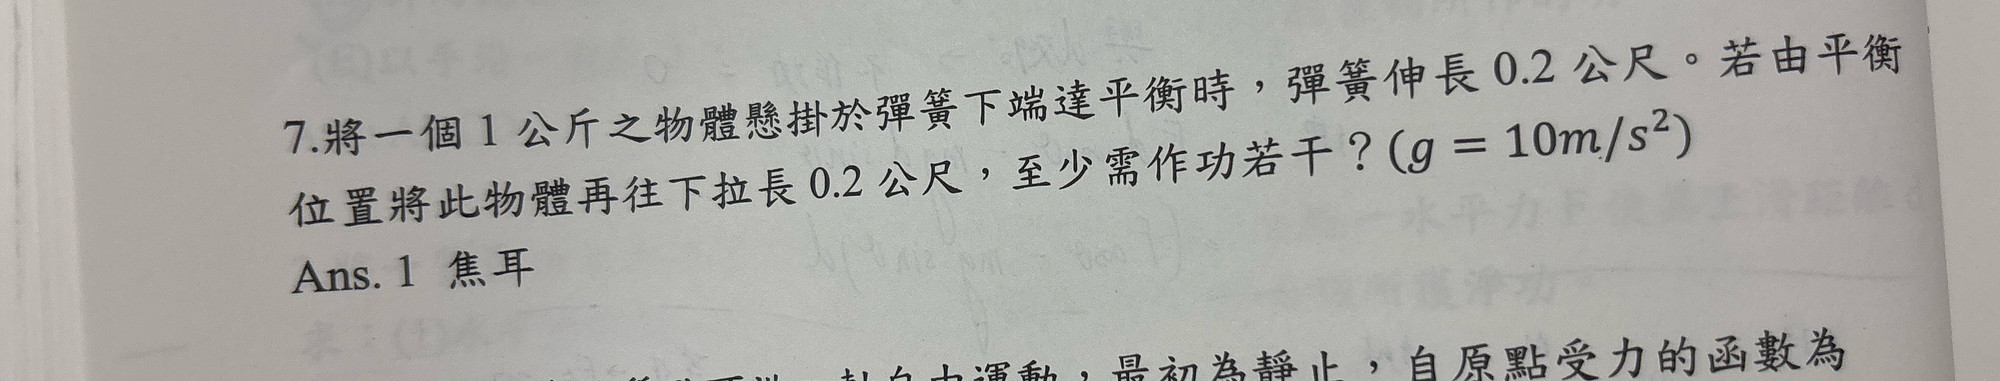 7.將一個 1 公斤之物體懸掛於彈簧下端達平衡時，彈簧伸長 0.2 公尺。若由平衡
位置將此物體再往下拉長 0.2 公尺，至少需作功若干？(g = 10m/s²)
Ans. 1 焦耳
自由運動，最初為靜止，自原點受力的函數為